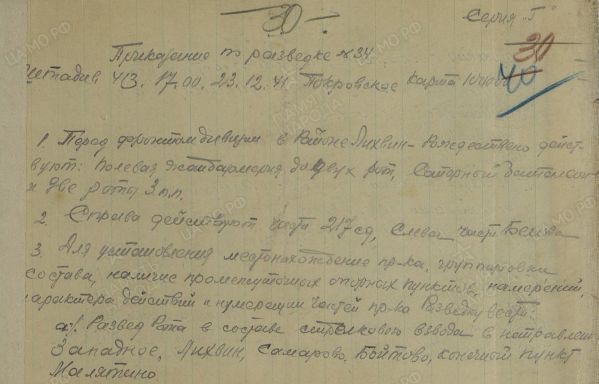 30
Серия "Г"
Приказание по разведке №34
30
Штадив 413. 17.00. 23.12.41. Покровское Карта 100000
40
1. Перед фронтом дивизии в районе Лихвин-Рождествено дейст-
вуют: Полевая жандармерия до двух рот, Саперный батальон
и две роты 3 п.п.
2. Справа действуют части 217 сд, слева части Белова
3. Для установления местонахождения пр-ка, группировки
состава, наличие промежуточных опорных пунктов, намерений,
характера действий и нумерации частей пр-ка Разведку вести:
а/. Развед Рота в составе стрелкового взвода в направлен.
Западное, Лихвин, Самарово, Бойтово, конечный пункт
Малятино